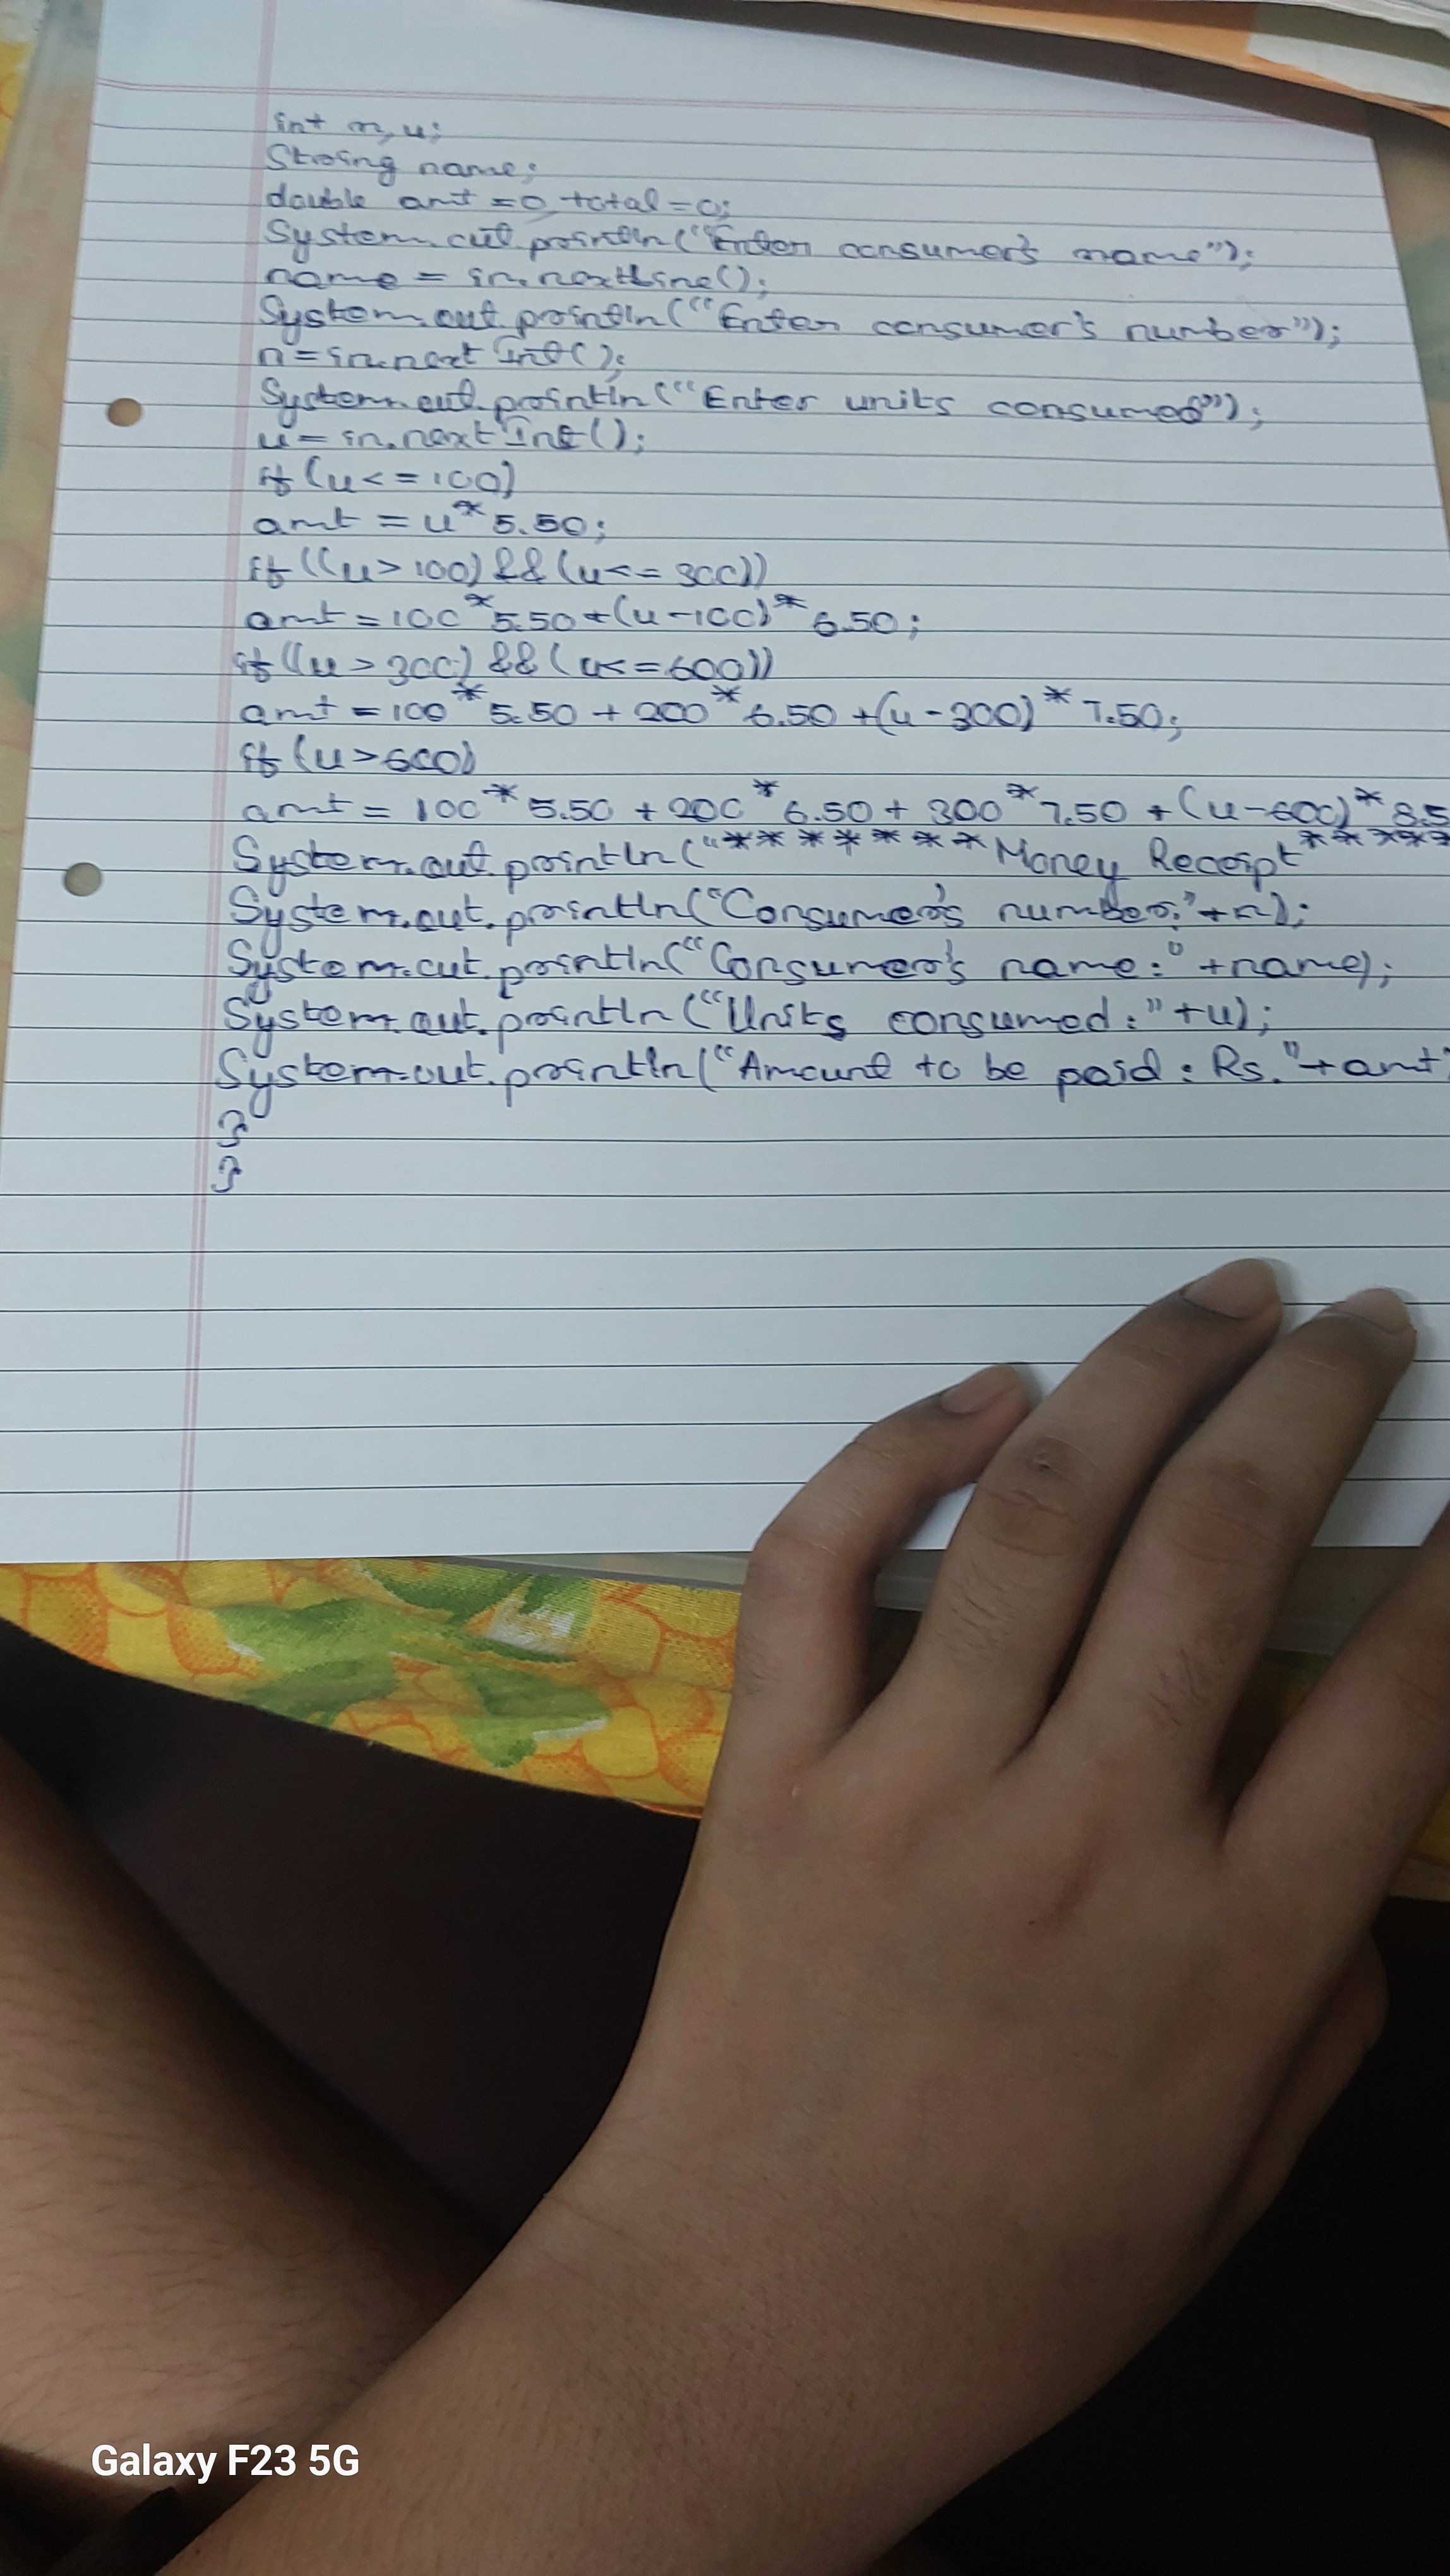 int n, u;
String name;
double amt = 0, total = 0;
System.out.println("Enter consumer's name");
name = in.nextLine();
System.out.println("Enter consumer's number");
n = in.next Int();
System.out.println("Enter units consumed");
u = in.next Int();
if (u <= 100)
amt = u * 5.50;
if ((u > 100) && (u <= 300))
amt = 100 * 5.50 + (u - 100) * 6.50;
if ((u > 300) && (u <= 600))
amt = 100 * 5.50 + 200 * 6.50 + (u - 300) * 7.50;
if (u > 600)
amt = 100 * 5.50 + 200 * 6.50 + 300 * 7.50 + (u - 600) * 8.5
System.out.println("******** Money Receipt *****
System.out.println("Consumer's number:" + n);
System.out.println("Consumer's name:" + name);
System.out.println("Units consumed:" + u);
System.out.println("Amount to be paid: Rs." + amt)
}
}
Galaxy F23 5G